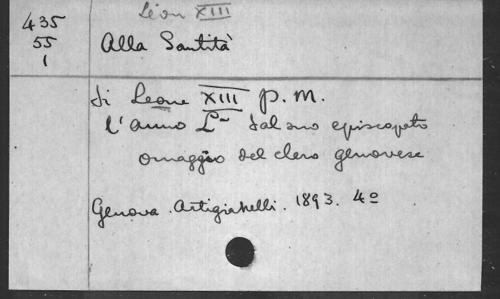 Léon XIII
435
55
1
Alla Santità
di Leone XIII P. M.
l'anno L.mo dal suo episcopato
omaggio del clero genovese
Genova. Artigianelli. 1893. 4º